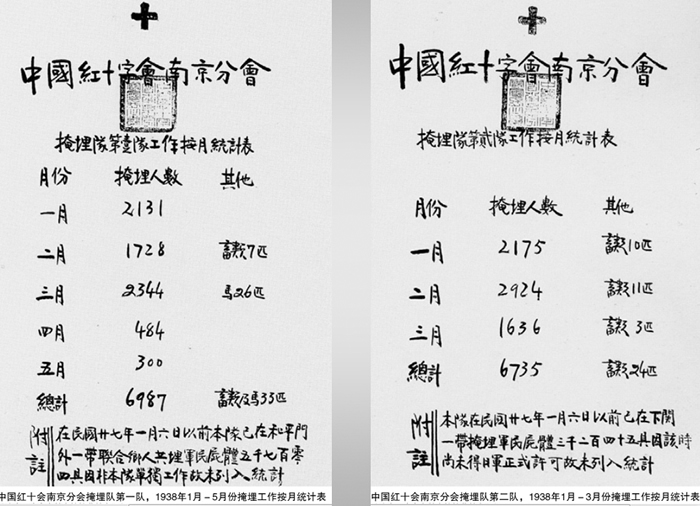 中國紅十字會南京分會
掩埋隊第壹隊工作按月統計表
月份 掩埋人數 其他
一月 2131
二月 1728 畜類7匹
三月 2344 馬26匹
四月 484
五月 300
總計 6987 畜類及馬33匹
附註
在民國廿七年一月六日以前本隊已在和平門
外一帶聯合鄉人共埋軍民屍體五千七百零
四具因非本隊單獨工作故未列入統計
中国红十会南京分会掩埋队第一队，1938年1月－5月份掩埋工作按月统计表
中國紅十字會南京分會
掩埋隊第貳隊工作按月統計表
月份 掩埋人數 其他
一月 2175 畜類10匹
二月 2924 畜類11匹
三月 1636 畜類3匹
總計 6735 畜類24匹
附註
本隊在民國廿七年一月六日以前已在下関
一帶掩埋軍民屍體三千二百四十五具因該時
尚未得日軍正式許可故未列入統計
中国红十会南京分会掩埋队第二队，1938年1月－3月份掩埋工作按月统计表